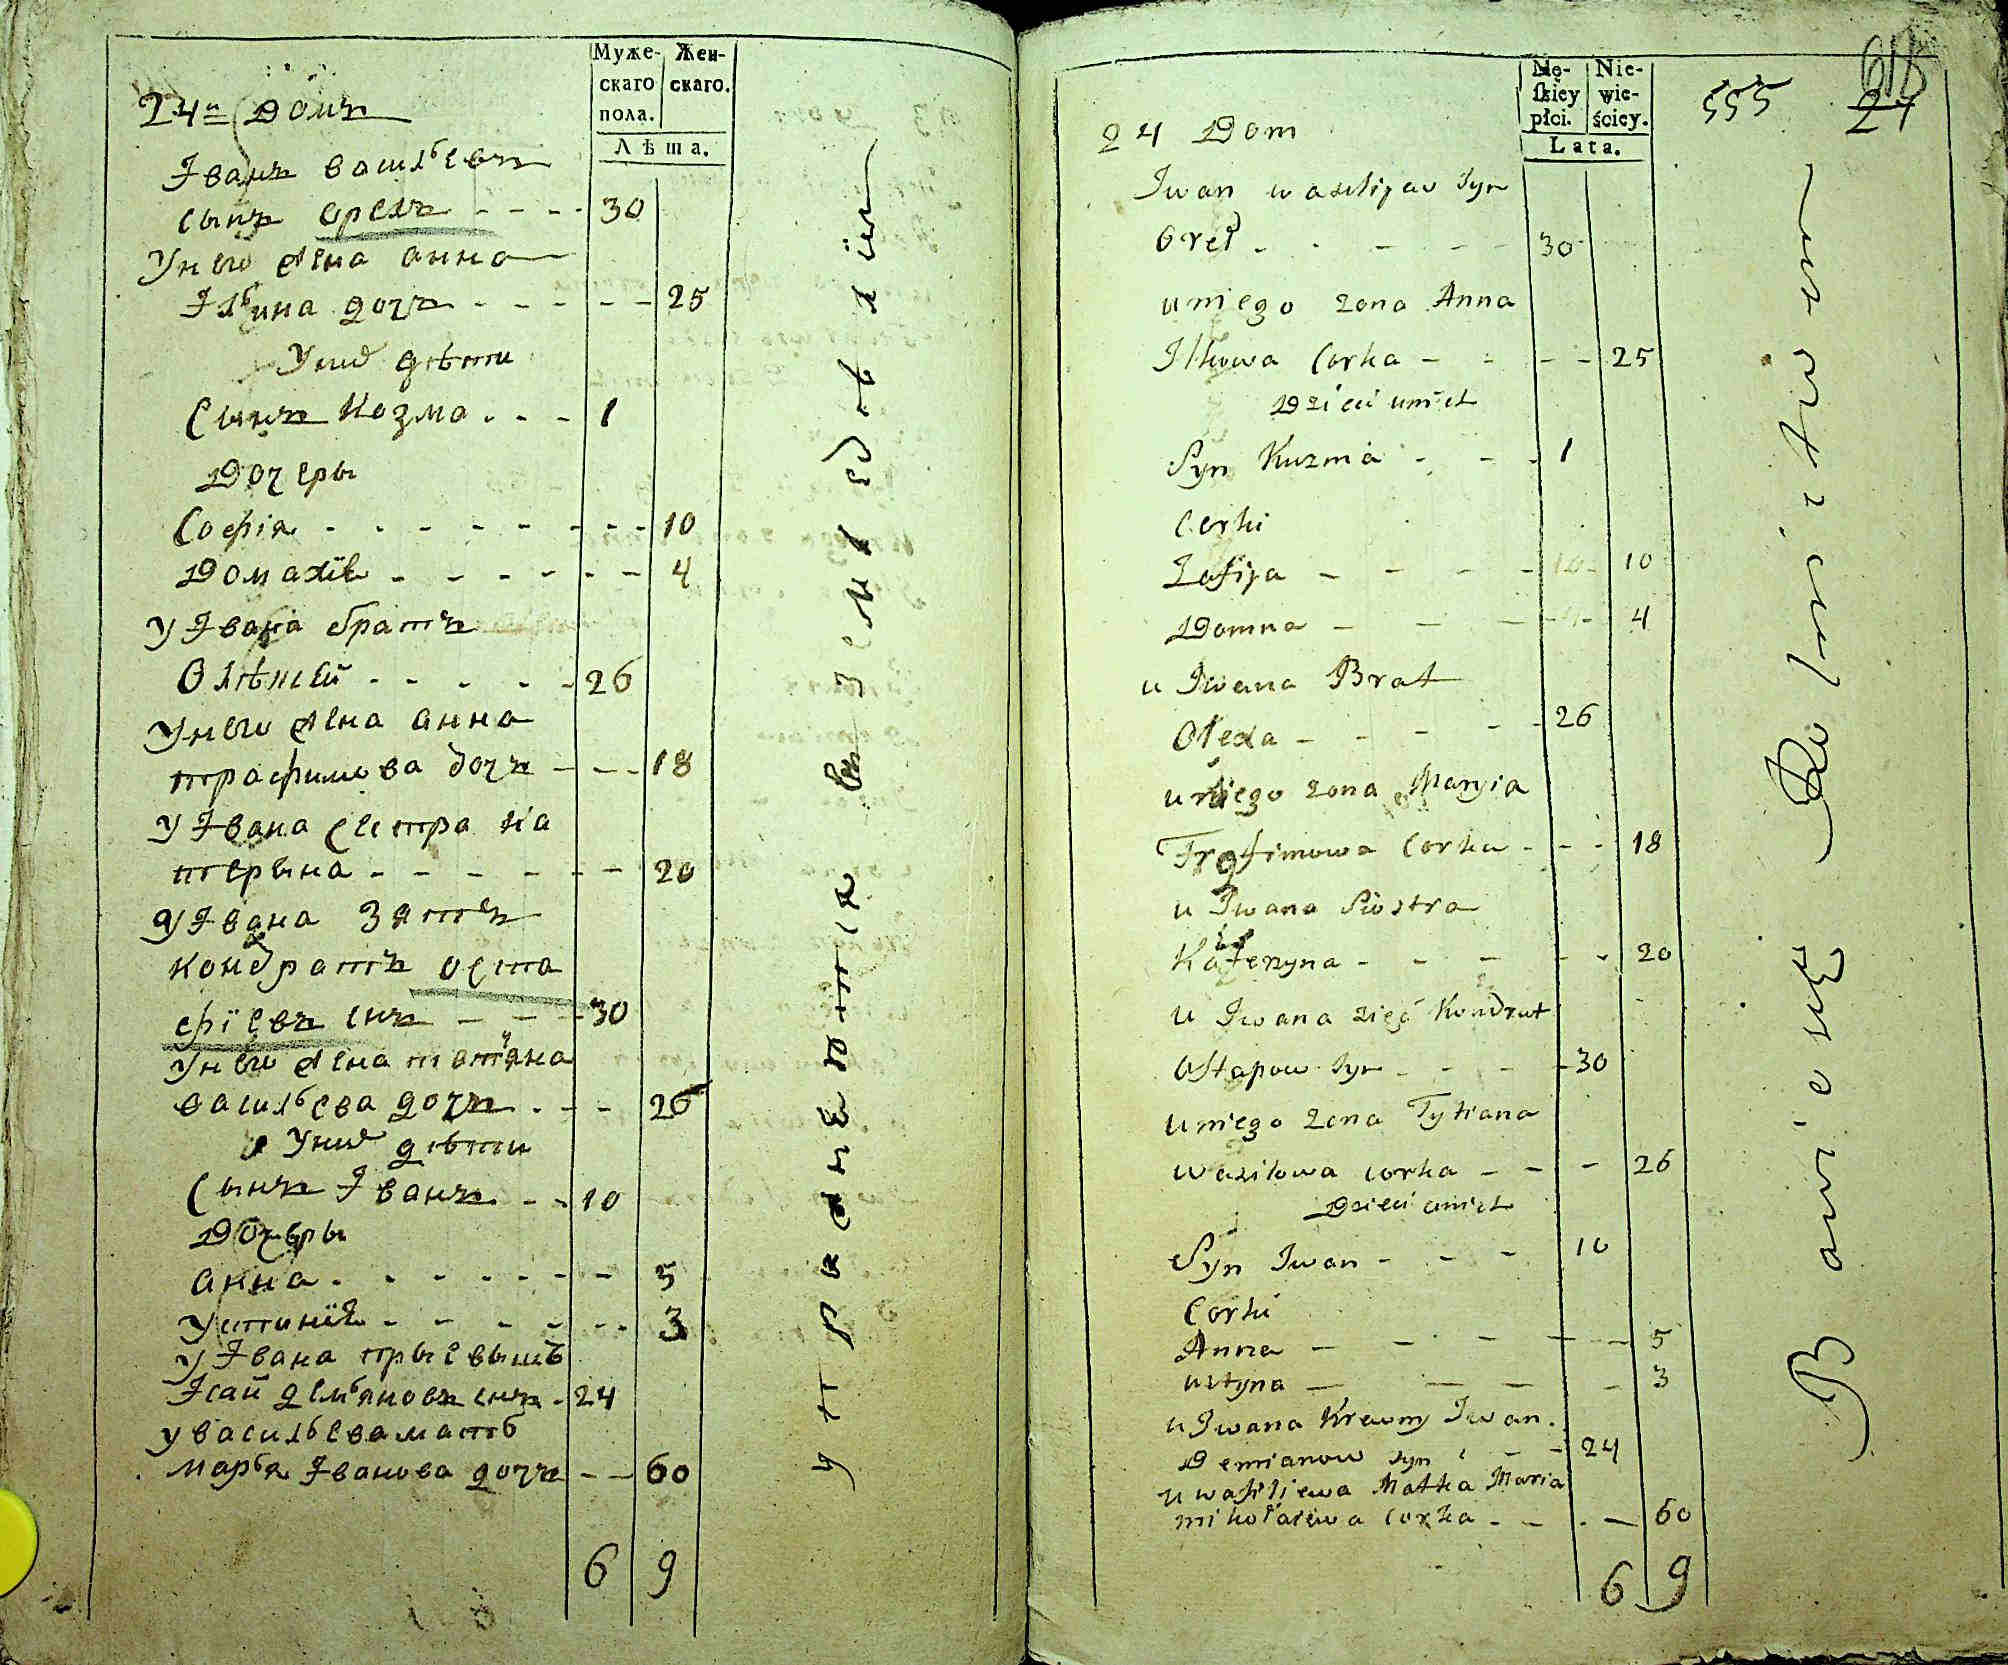 Муже- Жен-
скаго скаго.
пола.
Лѣта.
24й Домъ
Іванъ васильевъ
сынъ орелъ - - - - 30
У него жена анна
Ільина дочъ - - - - - 25
У них дѣти
Сынъ Козма - - - 1
Дочеры
Софія - - - - - - - - 10
Домахїя - - - - - - 4
у Івана братъ
Олѣксѣй - - - - - 26
У него жена анна
трафимова дочъ - - - 18
У Івана сестра ка
терына - - - - - - 20
У Івана зятъ
кондратъ оста
фїевъ снъ - - - 30
У него жена татияна
васильева дочъ - - - 26
У них дѣти
Сынъ Іванъ - - 10
Дочеры
анна - - - - - - - 5
Устинїя - - - - - - 3
у Івана
Ісай демъяновъ снъ - 24
у васильева мать
марья Іванова дочъ - - 60
6 9
въ земледѣ
Męs- Nie-
kiey wie-
płci. ściey.
Lata.
555
24
24 Dom
Iwan wasilijew syn
Oreł - - - - - 30
u niego zona Anna
Ilkowa Corka - - - - 25
Dzieci unich
Syn Kuzma - - - 1
Corki
Zofija - - - - - 10
Domna - - - - - 4
u Iwana Brat
Ołexa - - - - - 26
u niego zona Maryia
Trofimowa Corka - - - 18
u Iwana Siostra
Katerzyna - - - - - - 20
u Iwana zięć Kondrat
Ostapow syn - - - - 30
u niego zona Tytiana
wasilowa corka - - - 26
Dzieci unich
Syn Iwan - - - 10
Corki
Anna - - - - - - 5
ustyna - - - - 3
u Iwana Krewny Iwan
Demianow syn - - - 24
u wasiliewa Matka Maria
mikołaiewa Corka - - - - 60
6 9
Bawie się Rolnictwem